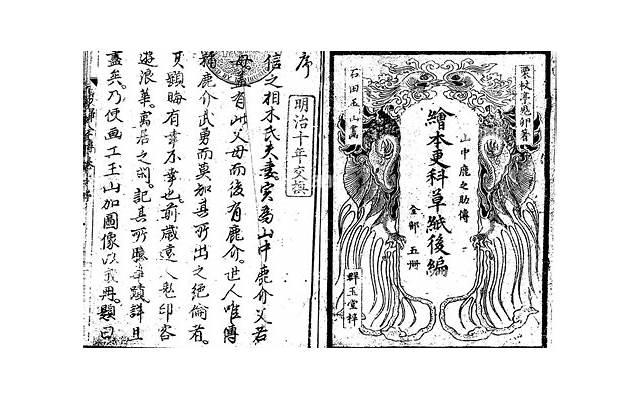 栗杖亭鬼卵著
山中鹿之助傳
繪本更科草紙後編
全部 五冊
石田玉山畫
群玉堂梓
序
明治十年交換
信之相木氏夫妻。実為山中鹿介父若
母。蓋有此父母而後有鹿介。世人唯傳
稱鹿介武勇而莫知其所出之絶倫者。
顕晦有幸不幸也。前歳遠人鬼卵客
遊浪華。寓居之間。記其所聴事蹟詳且
盡矣。乃使画工玉山加圖像以冊。題曰